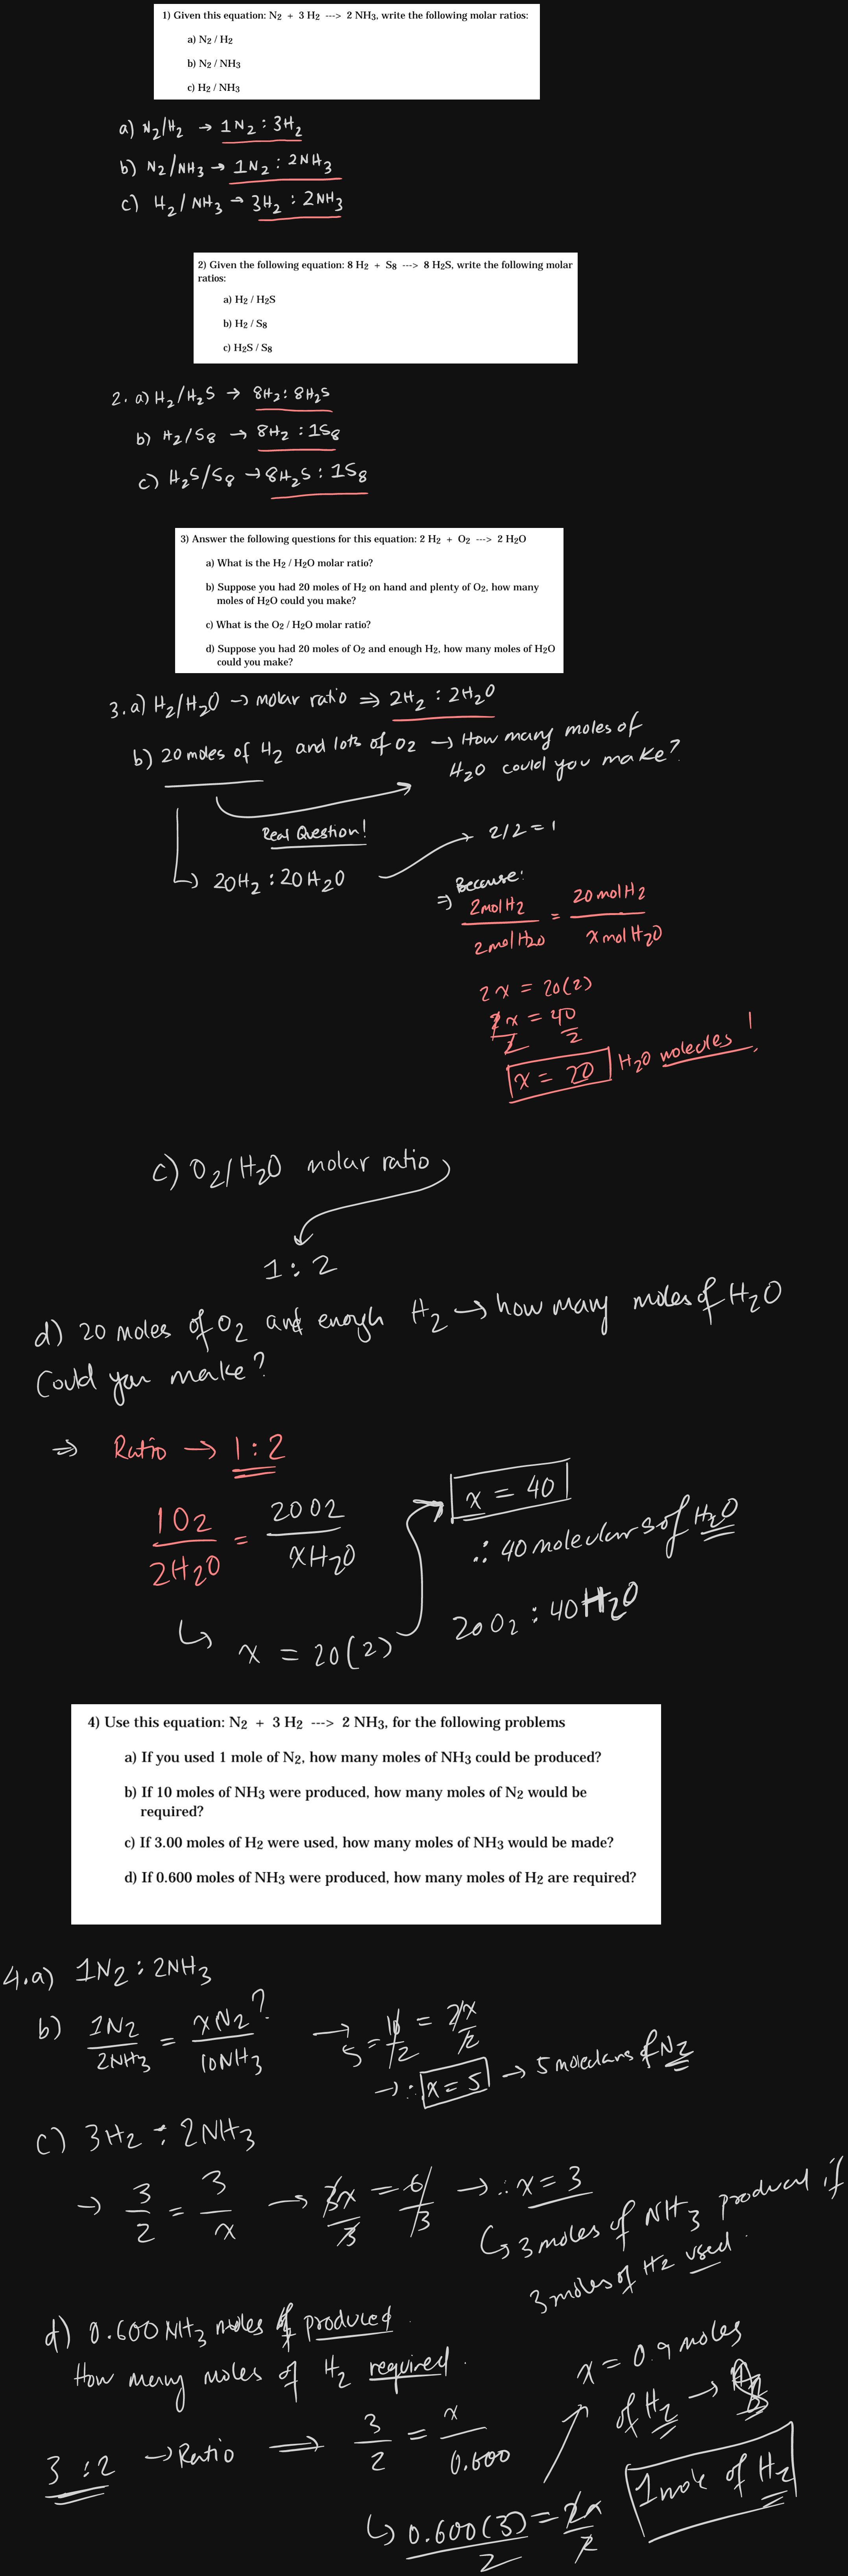 1) Given this equation: N2 + 3 H2 ---> 2 NH3, write the following molar ratios:
a) N2 / H2
b) N2 / NH3
c) H2 / NH3
a) N2/H2 → 1N2 : 3H2
b) N2/NH3 → 1N2 : 2NH3
c) H2/NH3 → 3H2 : 2NH3
2) Given the following equation: 8 H2 + S8 ---> 8 H2S, write the following molar
ratios:
a) H2 / H2S
b) H2 / S8
c) H2S / S8
2. a) H2/H2S → 8H2 : 8H2S
b) H2/S8 → 8H2 : 1S8
c) H2S/S8 → 8H2S : 1S8
3) Answer the following questions for this equation: 2 H2 + O2 ---> 2 H2O
a) What is the H2 / H2O molar ratio?
b) Suppose you had 20 moles of H2 on hand and plenty of O2, how many
moles of H2O could you make?
c) What is the O2 / H2O molar ratio?
d) Suppose you had 20 moles of O2 and enough H2, how many moles of H2O
could you make?
3. a) H2/H2O → molar ratio ⇒ 2H2 : 2H2O
b) 20 moles of H2 and lots of O2 → How many moles of
H2O could you make?
Real Question!
→ 2/2 = 1
↳ 20H2 : 20H2O
⇒ Because:
2mol H2 / 2mol H2O = 20 mol H2 / x mol H2O
2x = 20(2)
2x/2 = 40/2
x = 20 H2O molecules !
c) O2/H2O molar ratio
1 : 2
d) 20 moles of O2 and enough H2 → how many moles of H2O
Could you make?
⇒ Ratio → 1 : 2
1O2 / 2H2O = 20O2 / xH2O
↳ x = 20(2)
x = 40
∴ 40 moleculars of H2O
20O2 : 40H2O
4) Use this equation: N2 + 3 H2 ---> 2 NH3, for the following problems
a) If you used 1 mole of N2, how many moles of NH3 could be produced?
b) If 10 moles of NH3 were produced, how many moles of N2 would be
required?
c) If 3.00 moles of H2 were used, how many moles of NH3 would be made?
d) If 0.600 moles of NH3 were produced, how many moles of H2 are required?
4. a) 1N2 : 2NH3
b) 1N2 / 2NH3 = xN2? / 10NH3 → 5 = 10/2 = 2x/2
→ ∴ x = 5 → 5 moleculars of N2
c) 3H2 : 2NH3
→ 3/2 = 3/x → 3x/3 = 6/3 → ∴ x = 3
↳ 3 moles of NH3 produced if
3 moles of H2 used.
d) 0.600 NH3 moles produced.
How many moles of H2 required.
3 : 2 → Ratio ⇒ 3/2 = x/0.600
↳ 0.600(3)/2 = 2x/2
x = 0.9 moles
of H2 →
1 mole of H2